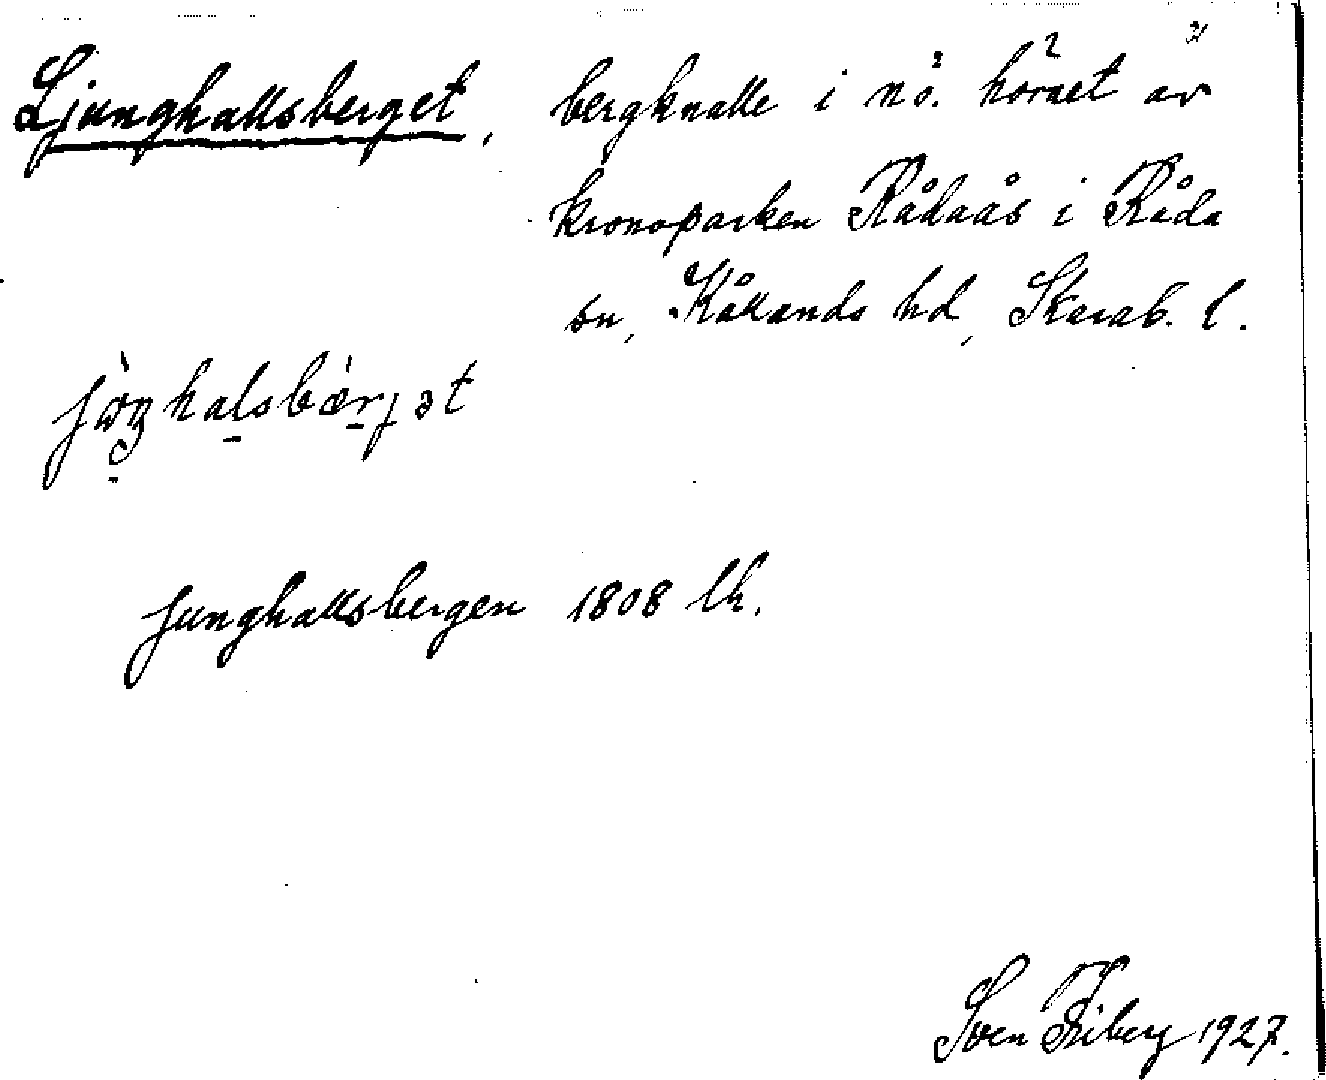 Ljunghallsberget, bergknalle i nö. hörnet av
kronoparken Rådaås i Råda
sn, Kållands hd, Skarab. l.
Junghallsbergen 1808 lk.
Sven Friberg 1927.